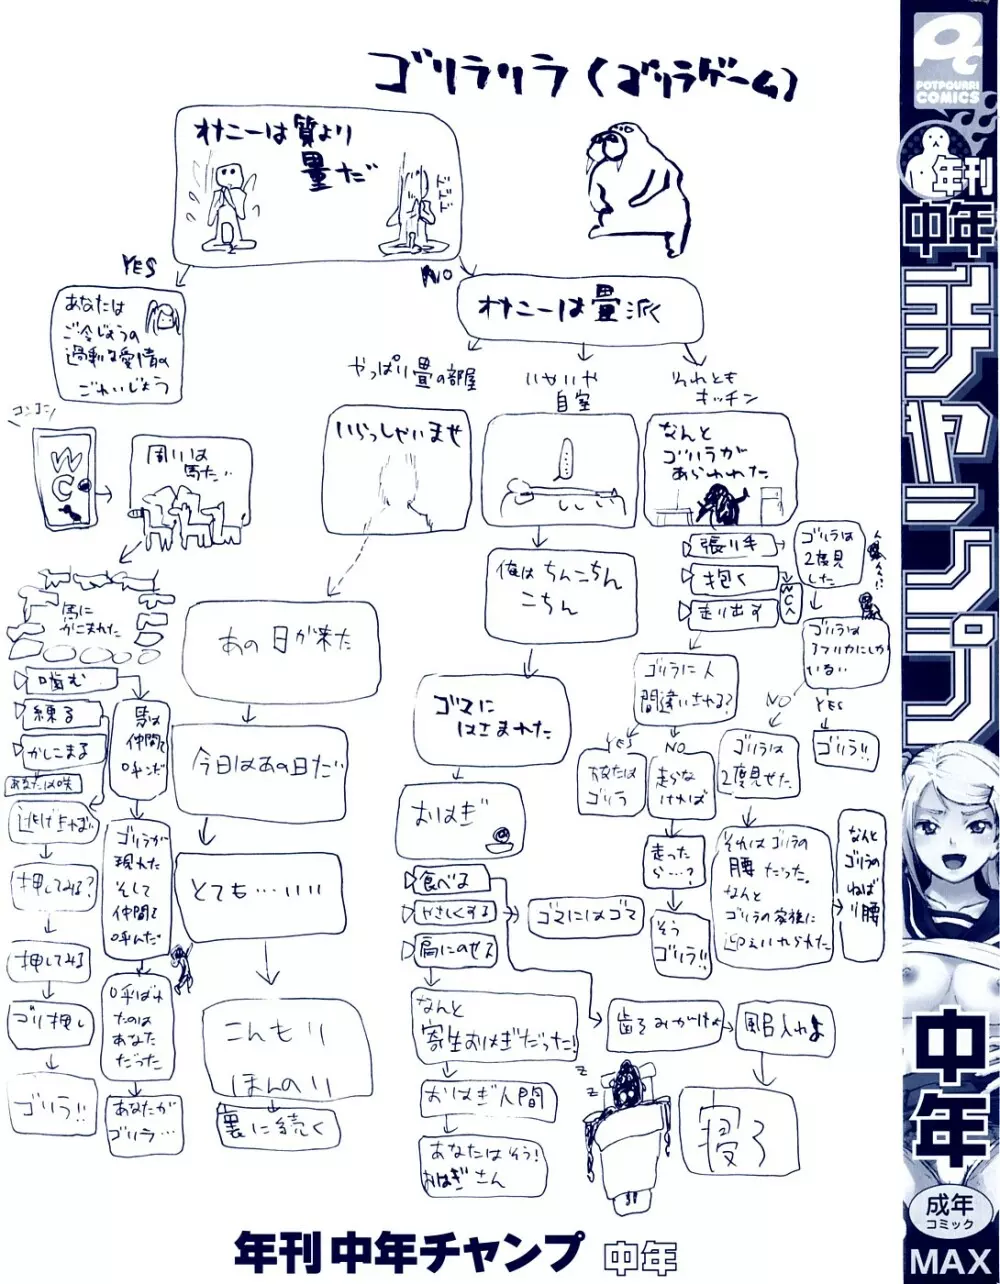 ゴリラリラ(ゴリラゲーム)
オナニーは質より
量だ
ドドド
YES
NO
あなたは
ご令じょうの
過剰な愛情の
ごれいじょう
オナニーは畳派
やっぱり畳の部屋
いやいや
自室
それとも
キッチン
コンコン
WC
周りは
馬だ…
いらっしゃいませ
なんと
ゴリラが
あらわれた
馬に
かこまれた
噛む
練る
かしこまる
あなたは咲
逃げれば…
押してみる?
押してみる
ゴリ押し
ゴリラ!!
馬は
仲間を
呼んだ
ゴリラが
現れた
そして
仲間を
呼んだ
呼ばれ
たのは
あなた
だった
あなたが
ゴリラ…
あの日が来た
今日はあの日だ
とても…いい
こんもり
ほんのり
裏に続く
俺はちんこちん
こちん
ゴマに
はさまれた
おはぎ
食べる
やさしくする
肩にのせて
ゴマにはゴマ
なんと
寄生おはぎだった!
おはぎ人間
あなたはそう!
おはぎさん
歯ろみがけよ
風呂入れよ
寝ろ
z
z
張り手
抱く
走り出す
WCへ
ゴリラは
2度見
した
ゴリラは
アフリカにしか
いない
NO
YES
ゴリラ!!
ゴリラに人
間違いされる?
YES
NO
あなたは
ゴリラ
走らな
ければ
走った
ら…?
そう
ゴリラ!!
ゴリラは
2度見せた
それはゴリラの
腰だった。
なんと
ゴリラの家族に
迎えいれられた
なんと
ゴリラの
ねば
り腰
年刊 中年チャンプ 中年
Pt
POTPOURRI
COMICS
年刊
中年
チャンプ
中年
成年
コミック
MAX